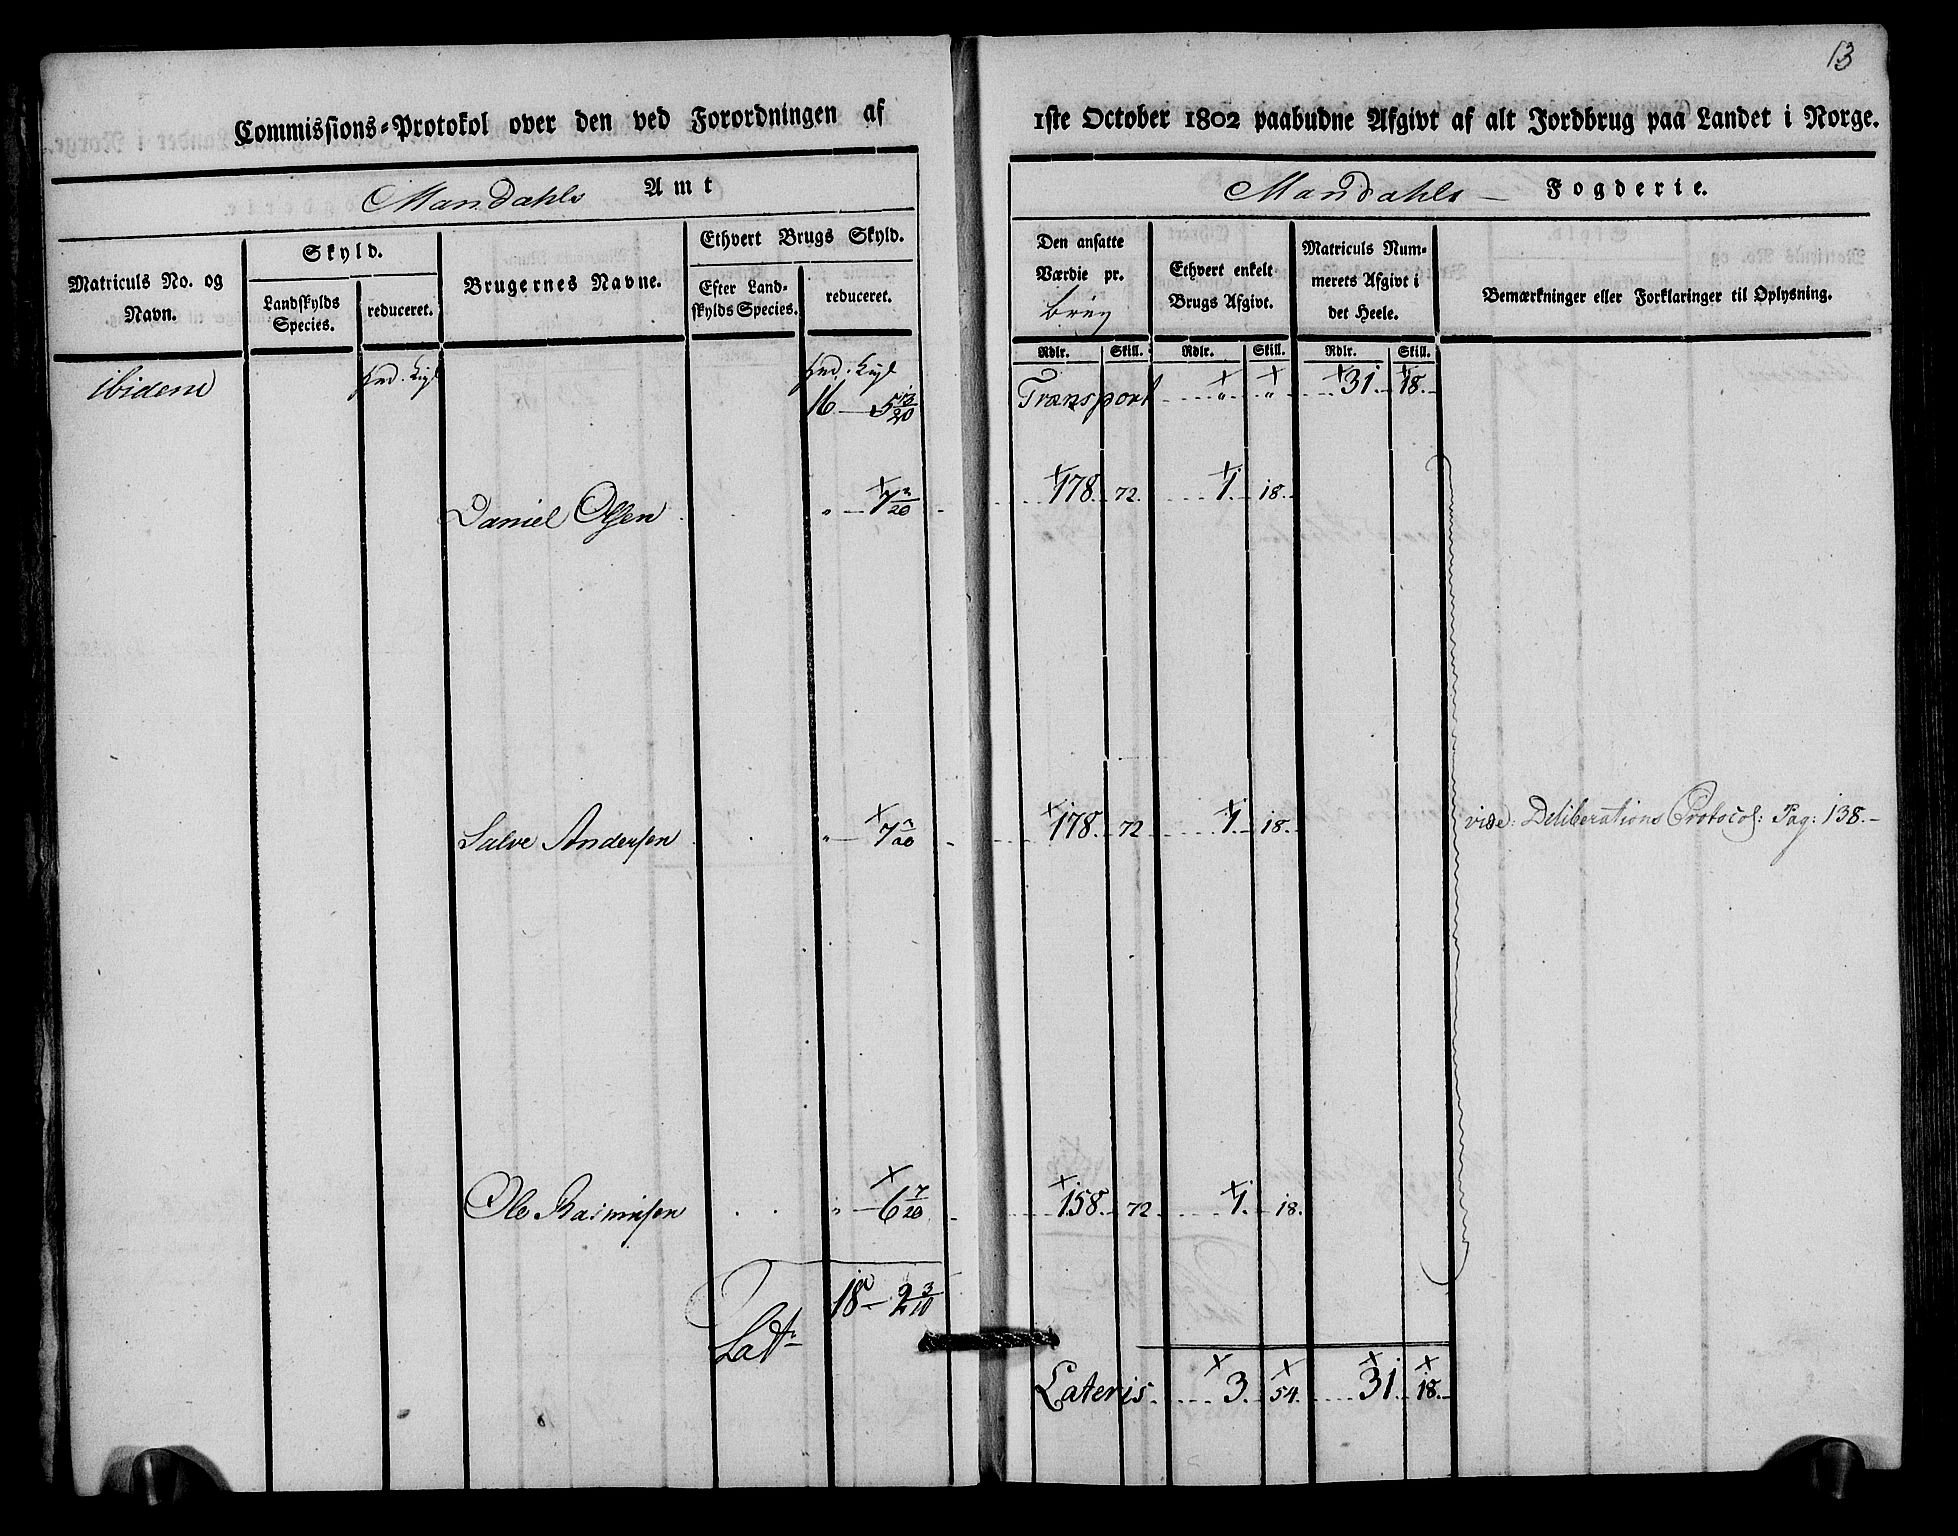 13
Commissions-Protokol over den ved Forordningen af 1ste October 1802 paabudne Afgivt af alt Jordbrug paa Landet i Norge.
Mandahls Amt
Mandahls Fogderie.
Matriculs No. og Navn.
Skyld.
Landskylds Species.
reduceret.
Brugernes Navne.
Ethvert Brugs Skyld.
Efter Landskylds Species.
reduceret.
Den ansatte Værdie pr. brug
Ethvert enkelt Brugs Afgivt.
Matriculs Nummerets Afgivt i det Heele.
Bemærkninger eller Forklaringer til Oplysning.
Rdlr. Skill. Rdlr. Skill. Rdlr. Skill.
ibidem
16 - 5 13/20 Transport " " 31. 18.
Daniel Olsen " - 7 3/20 178. 72. 1. 18.
Salve Andersen " - 7 3/20 178. 72 1. 18. vide: Deliberations Protocol: Pag: 138.
Ole Rasmusen " - 6 7/20 158. 72 1. 18.
Latt 18 - 2 3/10
Lateris 3. 54. 31. 18.